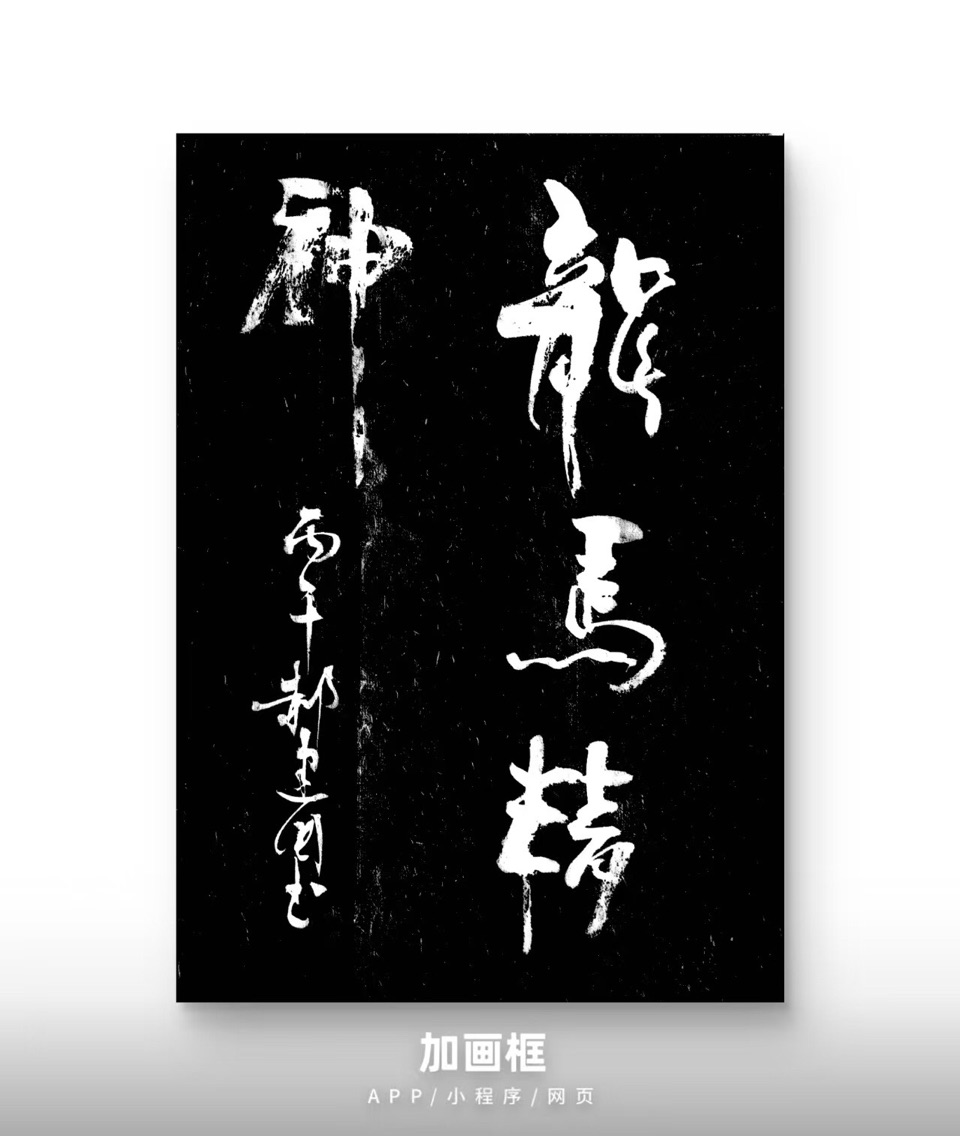 龍馬精
神
丙午郝建国书
加画框
APP/小程序/网页